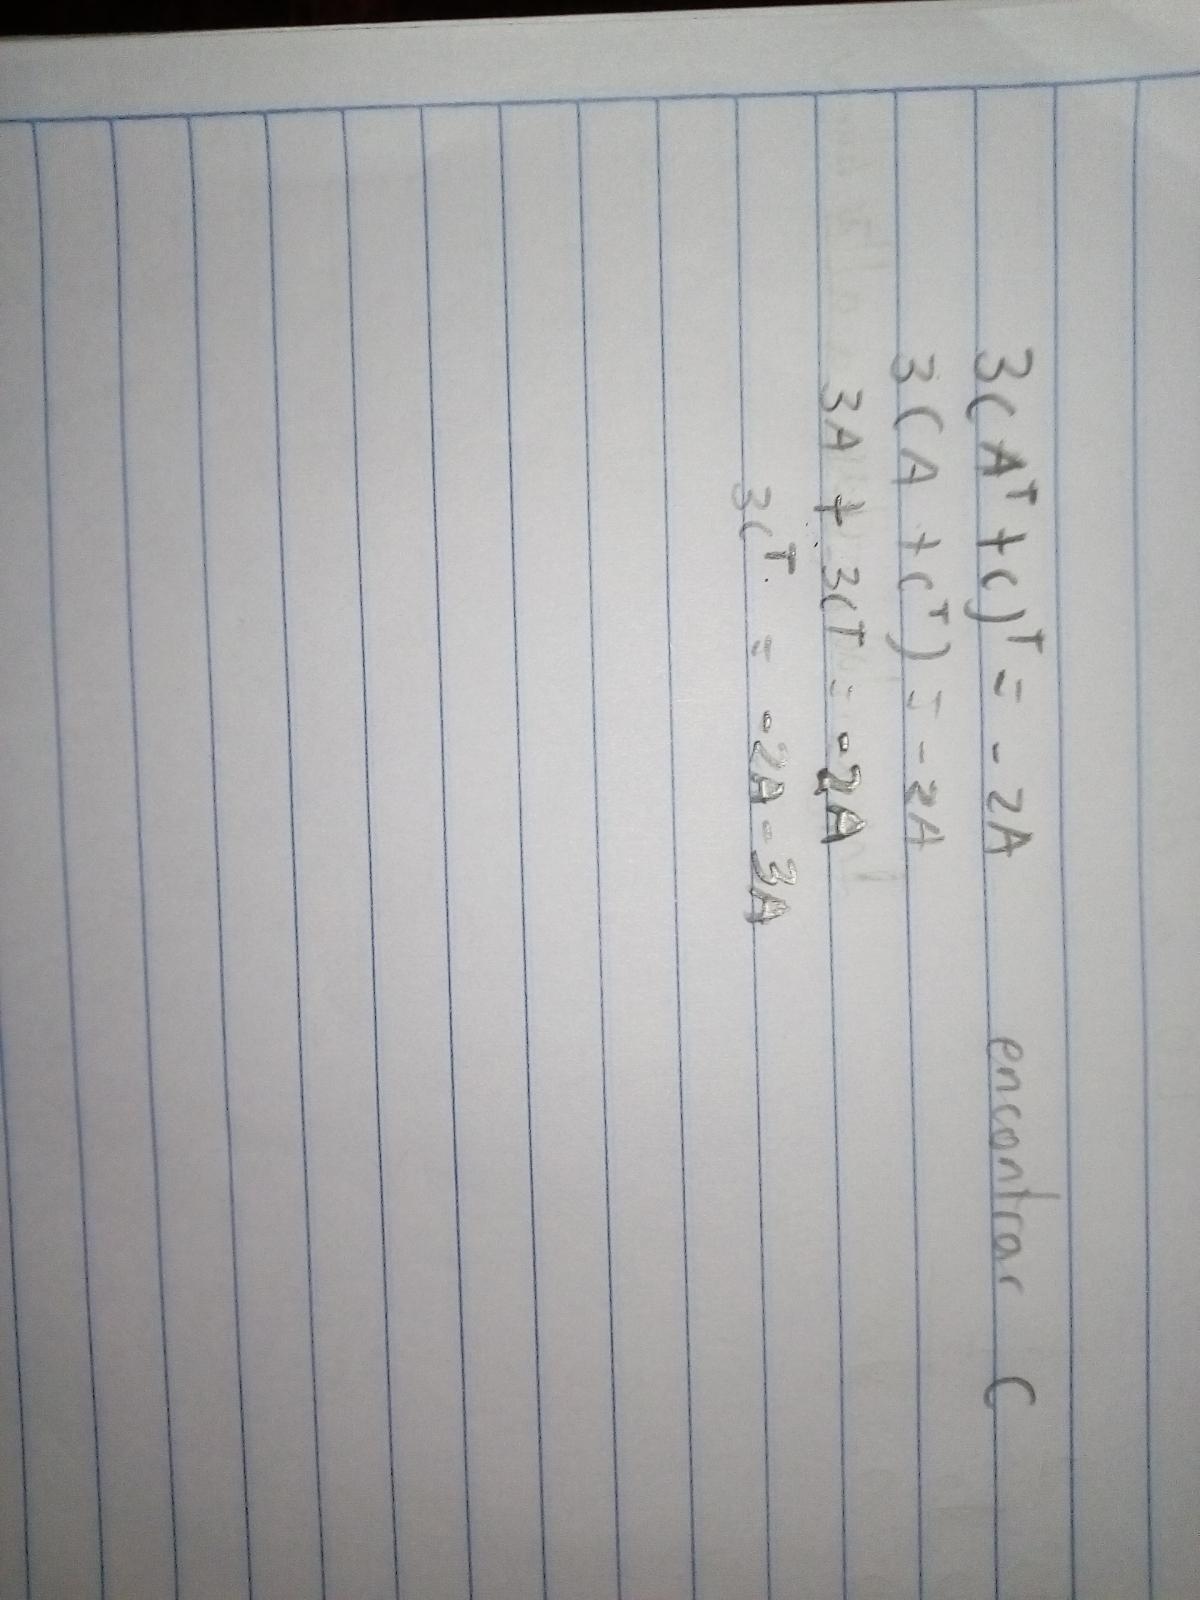 3(Aᵀ + C)ᵀ = -2A encontrar C
3(A + Cᵀ) = -2A
3A + 3Cᵀ = -2A
3Cᵀ = -2A - 3A